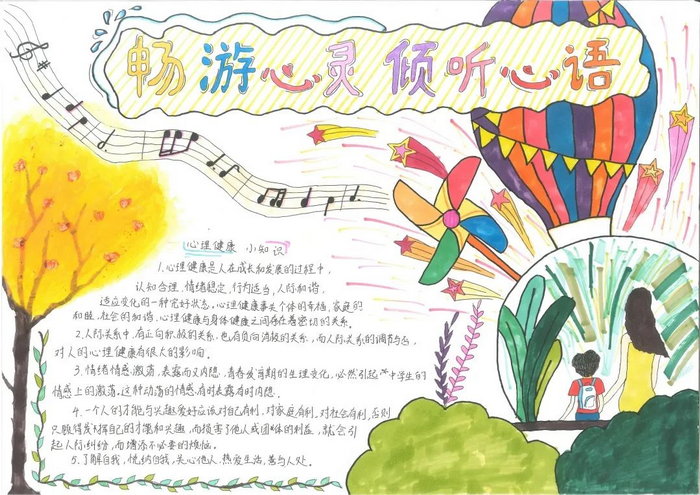 畅游心灵 倾听心语
心理健康 小知识
1.心理健康是人在成长和发展的过程中,
认知合理,情绪稳定,行为适当,人际和谐,
适应变化的一种完好状态。心理健康事关个体的幸福,家庭的
和睦,社会的和谐,心理健康与身体健康之间存在着密切的关系。
2.人际关系中,有正向积极的关系,也有负向消极的关系,而人际关系的调节与否,
对人的心理健康有很大的影响。
3.情绪情感激荡,表露而又内隐,青春发育期的生理变化,必然引起中学生的
情感上的激荡。这种动荡的情感,有时表露有时内隐。
4.一个人的才能与兴趣爱好应该对自己有利,对家庭有利,对社会有利,否则
只顾得发挥自己的才能和兴趣,而损害了他人或团体的利益,就会引
起人际纠纷,而增添不必要的烦恼。
5.了解自我,悦纳自我,关心他人,热爱生活,善与人处。